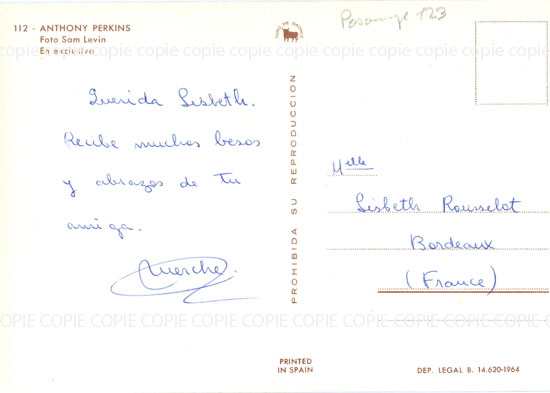 112 - ANTHONY PERKINS
Foto Sam Levin
En exclusiva
123
COPIE COPIE COPIE COPIE COPIE COPIE COPIE COPIE COPIE COPIE COPIE COPIE
Querida Lisbeth.
Recibe muchos besos
y abrazos de tu
amiga.
Merche.
PROHIBIDA SU REPRODUCCION
Mlle
Lisbeth Rousselot
Bordeaux
(France)
COPIE COPIE COPIE COPIE COPIE COPIE COPIE COPIE COPIE COPIE COPIE COPIE
PRINTED
IN SPAIN
DEP. LEGAL B. 14.620-1964